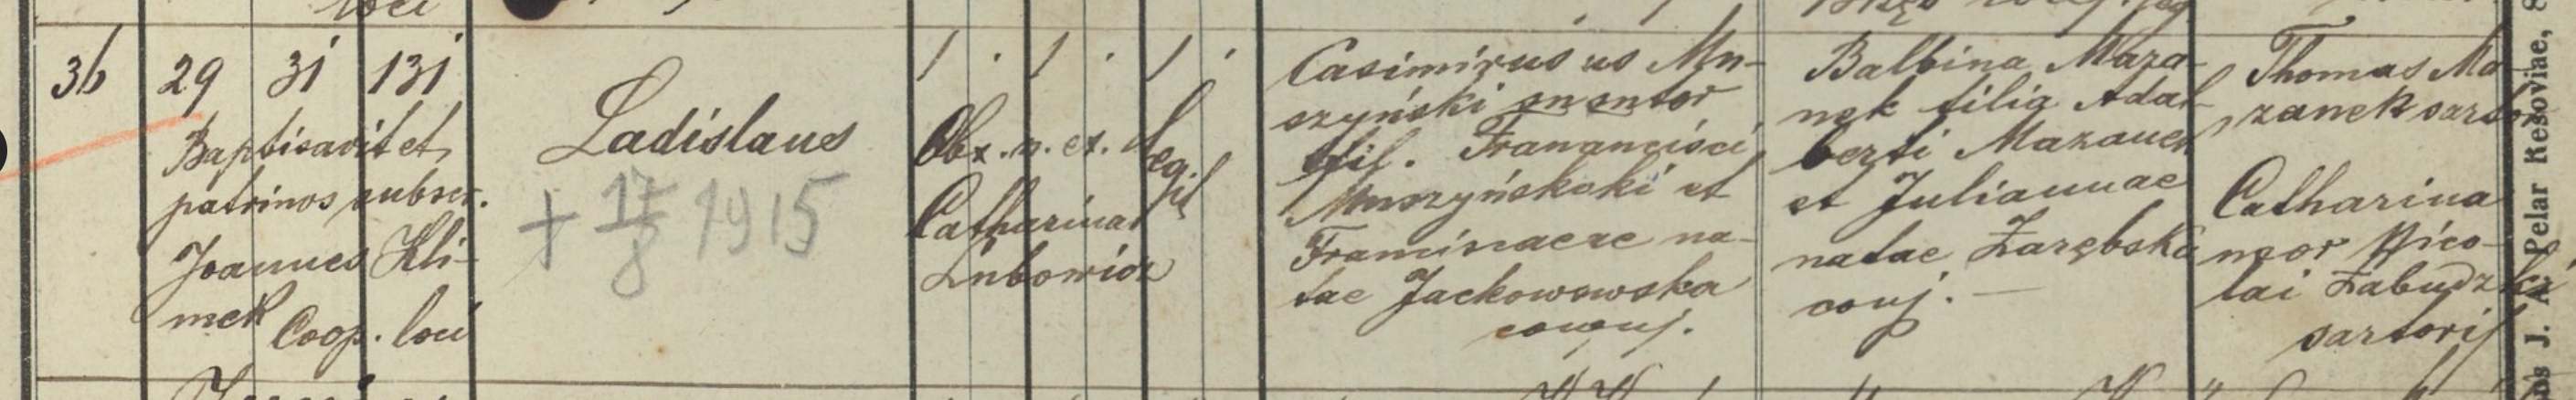 loci
36 29 31 131
Baptisavit et
patrinos subscr.
Joannes Kli-
mek Coop. loci
Ladislaus
+ 17/8 1915
1 . 1 . 1 .
Obx. n. ex. Legit
Catharina
Lubowicz
Casimirus us Mu-
szyński
fil. Franancisci
Muszyńskoki et
Franciscaeae na-
tae Jackowowska
conuj.
Balbina Maza-
nek filia Adal-
berti Mazanek
et Juliannae
natae Zarębska
conj. —
Thomas Ma-
zanek sartor
Catharina
uxor Nico-
lai Zabudzki
sartoris
os J. A. Pelar Resoviae, 8